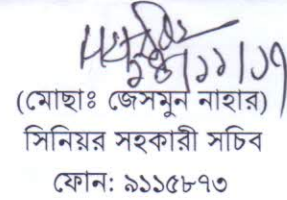 (মোছাঃ জেসমুন নাহার)
সিনিয়র সহকারী সচিব
ফোন: ৯১১৫৮৭৩